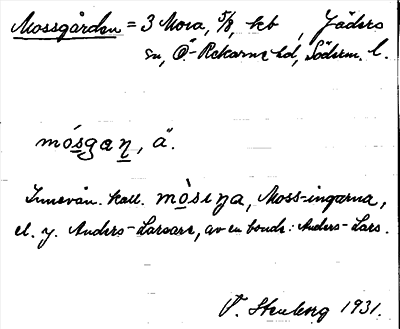 Mossgården = 3 Mora, 5/8, kb , Jäders
sn, Ö-Rekarne hd, Söderm. l.
mósgaṉ, ä.
Innevån. kall. mòsıŋa, Moss-ingarna,
el. y. Anders-Larsare, av en bonde: Anders-Lars.
V. Stenberg 1931.